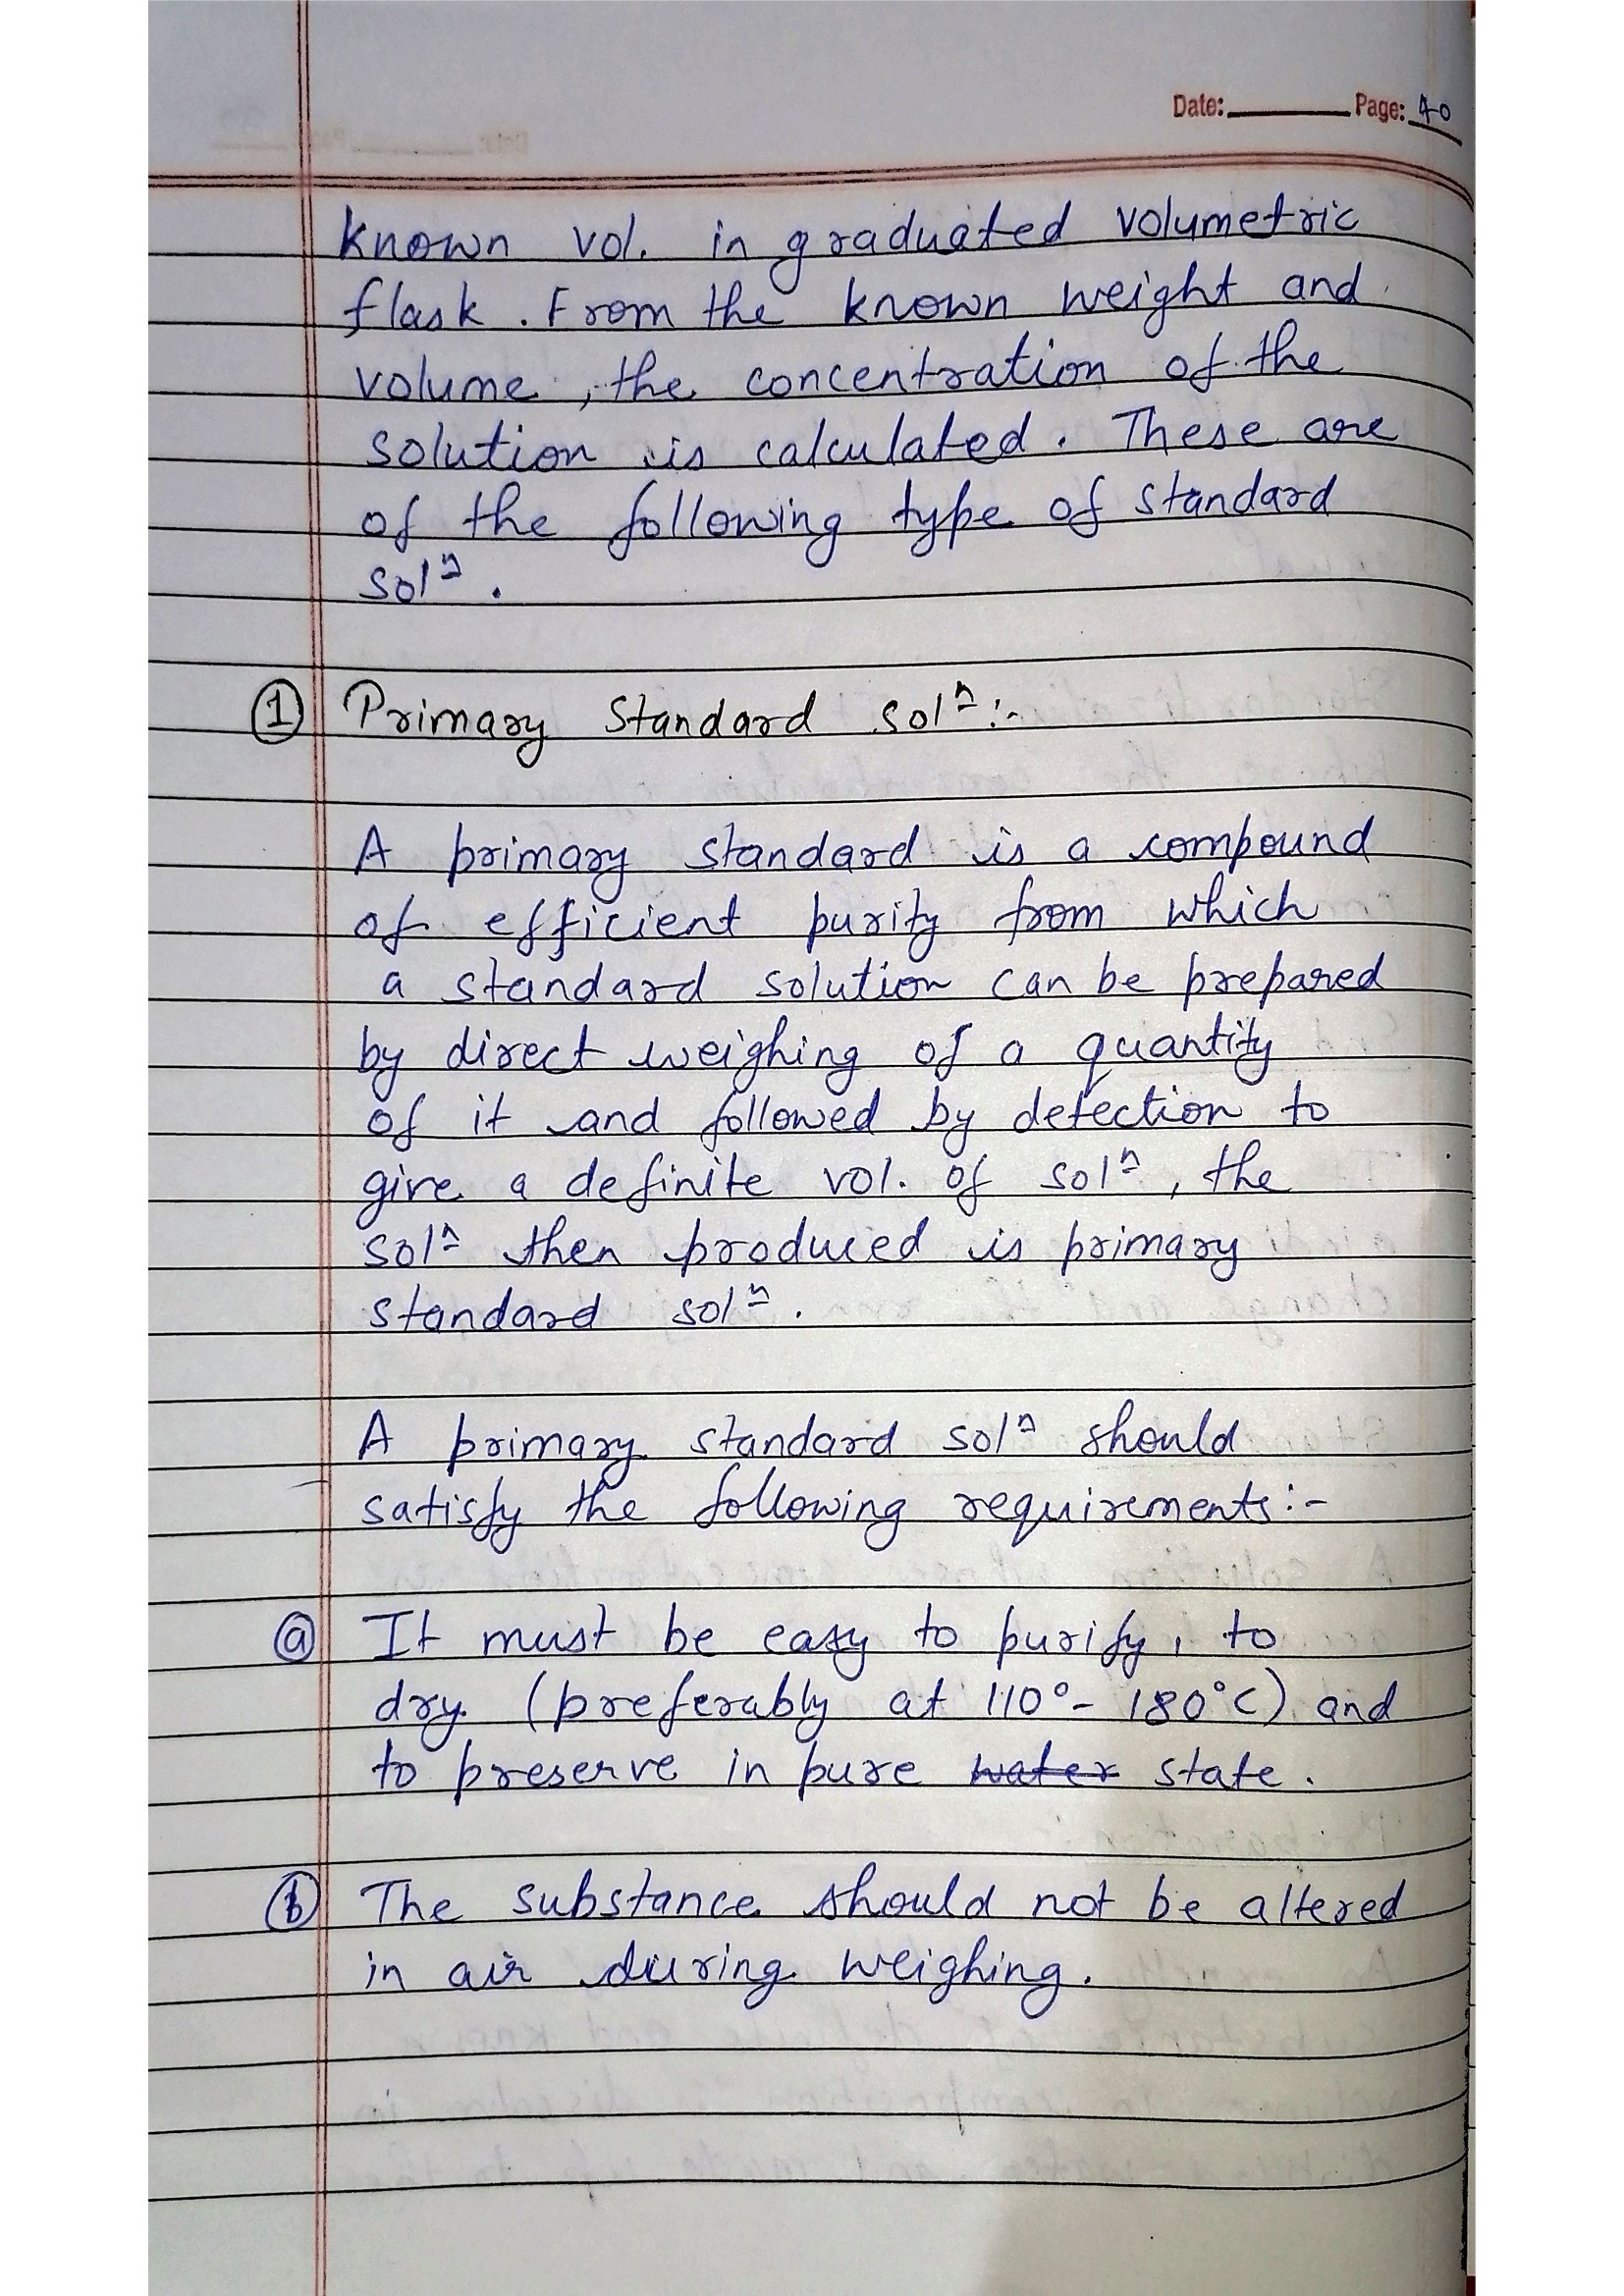 Date: Page: 40
known vol. in graduated volumetric
flask. From the known weight and
volume, the concentration of the
solution is calculated. These are
of the following type of standard
solⁿ.
① Primary Standard solⁿ:-
A primary standard is a compound
of efficient purity from which
a standard solution can be prepared
by direct weighing of a quantity
of it and followed by detection to
give a definite vol. of solⁿ, the
solⁿ then produced is primary
standard solⁿ.
A primary standard solⁿ should
satisfy the following requirements:-
ⓐ It must be easy to purify, to
dry (preferably at 110°- 180°C) and
to preserve in pure ~~water~~ state.
ⓑ The substance should not be altered
in air during weighing.